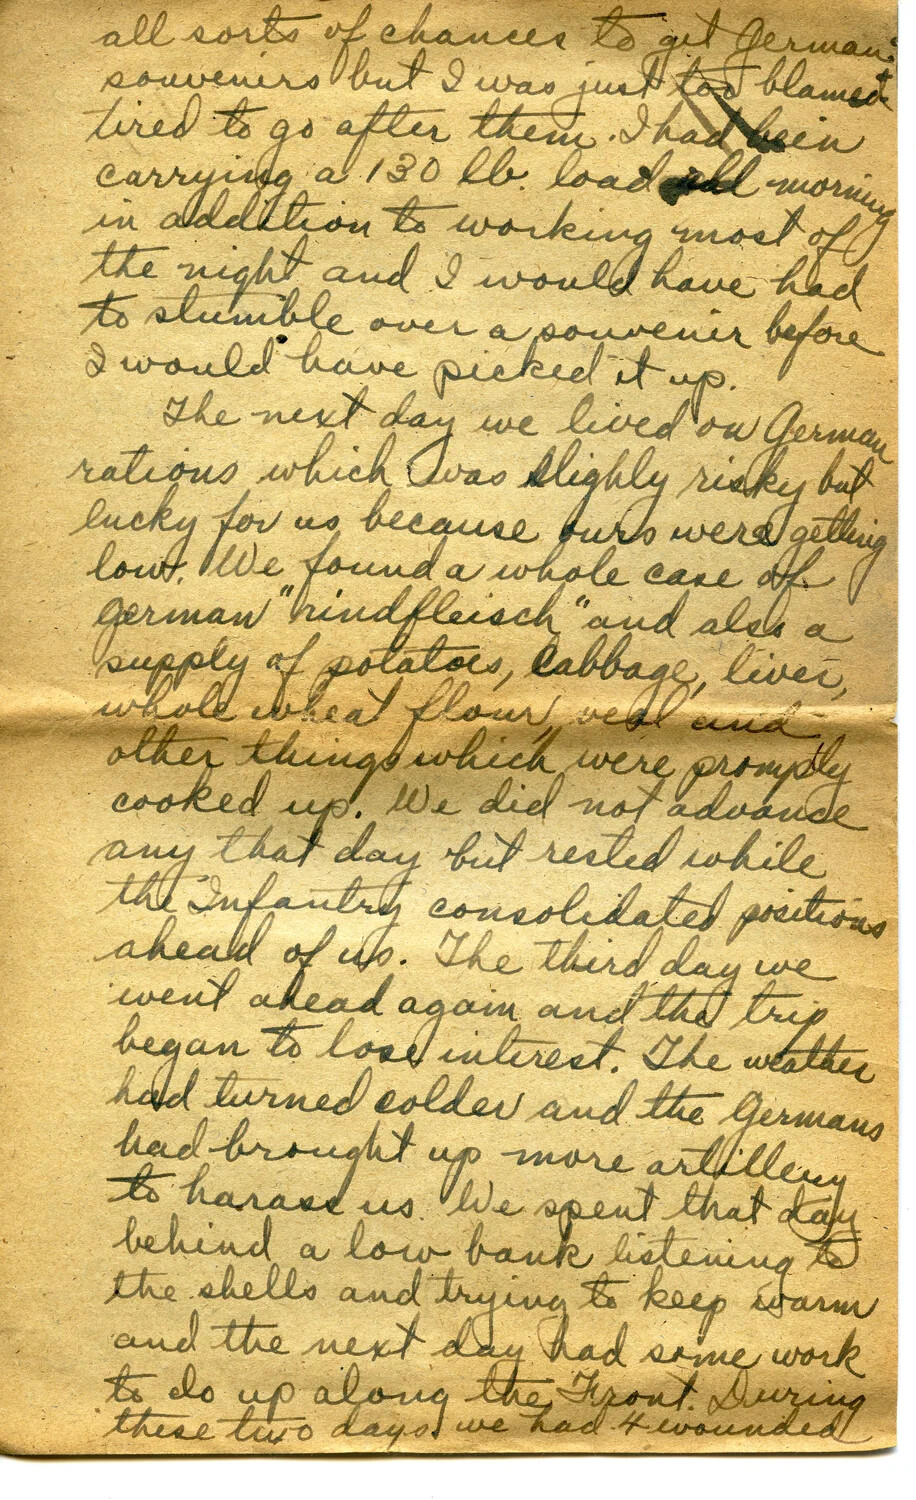 all sorts of chances to get German
souvenirs but I was just too blamed
tired to go after them. I had been
carrying a 130 lb. load all morning
in addition to working most of
the night and I would have had
to stumble over a souvenir before
I would have picked it up.
The next day we lived on German
rations which was slighly risky but
lucky for us because ours were getting
low. We found a whole case of
German "rindfleisch" and also a
supply of potatoes, cabbage, liver,
whole wheat flour, veal and
other things which were promptly
cooked up. We did not advance
any that day but rested while
the Infantry consolidated positions
ahead of us. The third day we
went ahead again and the trip
began to lose interest. The weather
had turned colder and the Germans
had brought up more artillery
to harass us. We spent that day
behind a low bank listening to
the shells and trying to keep warm
and the next day had some work
to do up along the Front. During
these two days we had 4 wounded